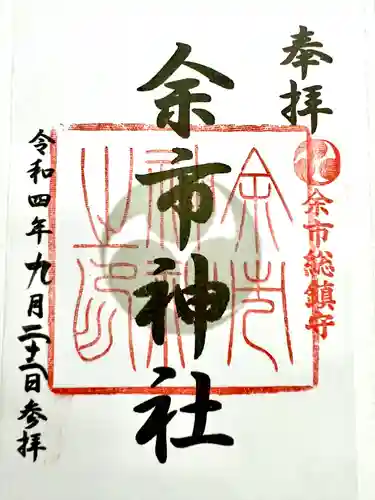 奉拝
余市総鎮守
余市神社
余市神社之印
令和四年九月二十二日参拝